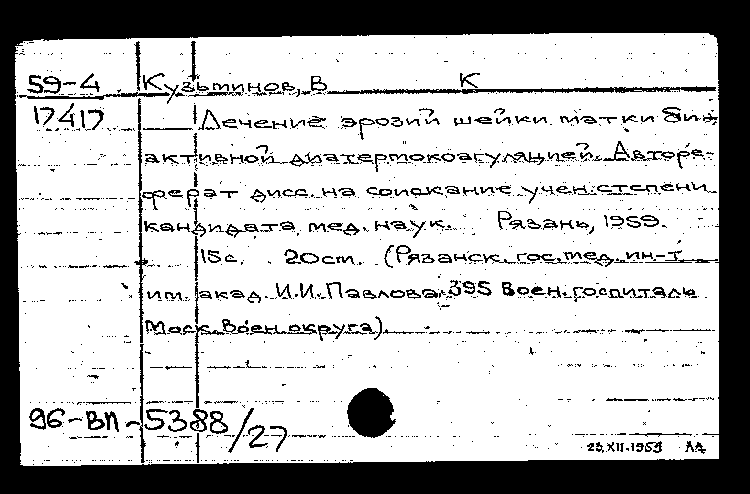 59-4 Кузьминов, В К
17417 Лечение эрозий шейки матки биа-
активной диатермокоагуляцией. Авторе-
ферат дисс. на соискание учен. степени
кандидата мед. наук. Рязань, 1959.
15с. 20см. (Рязанск. гос. мед. ин-т
им. акад. И.И. Павлова. 395 Воен. госпиталь
Моск. Воен. округа).
96-ВП-5388/27
23.XII.1959 АА